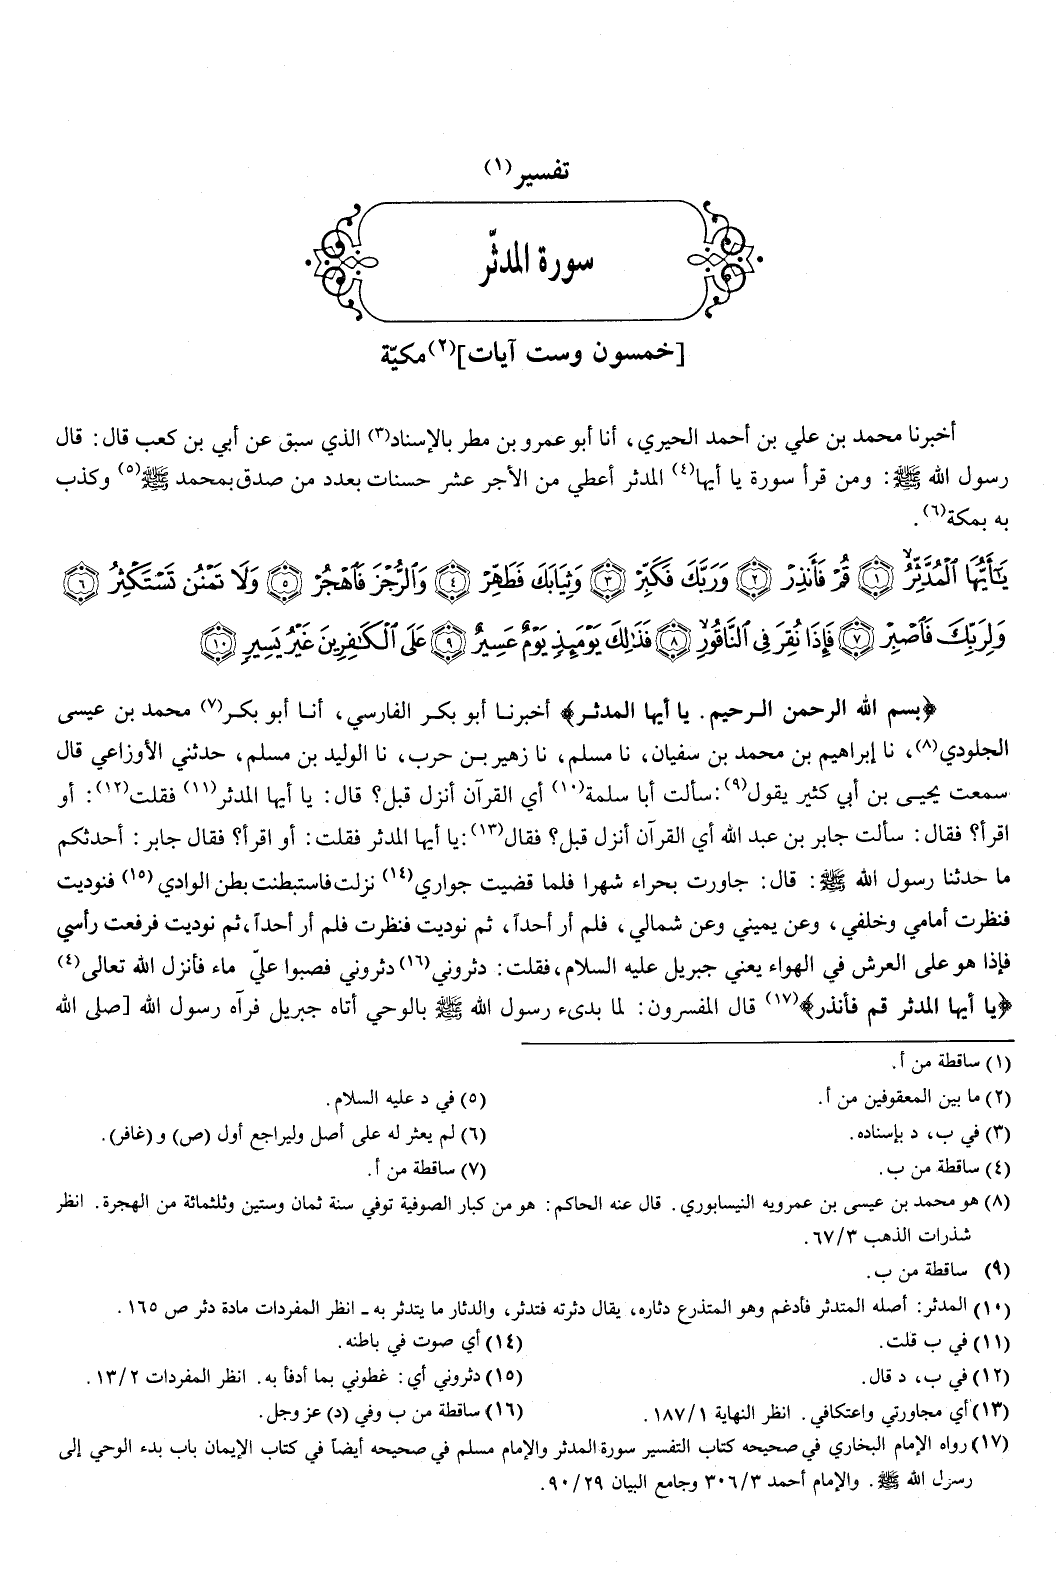 تفسير(١)
سورة المدثّر
[خمسون وست آيات](٢) مكيّة
أخبرنا محمد بن علي بن أحمد الحيري، أنا أبو عمرو بن مطر بالإسناد(٣) الذي سبق عن أبي بن كعب قال: قال
رسول الله ﷺ: ومن قرأ سورة يا أيها(٤) المدثر أعطي من الأجر عشر حسنات بعدد من صدق بمحمد ﷺ(٥) وكذب
به بمكة(٦).
يَٰٓأَيُّهَا ٱلْمُدَّثِّرُ ۝١ قُمْ فَأَنذِرْ ۝٢ وَرَبَّكَ فَكَبِّرْ ۝٣ وَثِيَابَكَ فَطَهِّرْ ۝٤ وَٱلرُّجْزَ فَٱهْجُرْ ۝٥ وَلَا تَمْنُن تَسْتَكْثِرُ ۝٦
وَلِرَبِّكَ فَٱصْبِرْ ۝٧ فَإِذَا نُقِرَ فِى ٱلنَّاقُورِ ۝٨ فَذَٰلِكَ يَوْمَئِذٍ يَوْمٌ عَسِيرٌ ۝٩ عَلَى ٱلْكَٰفِرِينَ غَيْرُ يَسِيرٍ ۝١٠
﴿بسم الله الرحمن الرحيم. يا أيها المدثر﴾ أخبرنا أبو بكر الفارسي، أنا أبو بكر(٧) محمد بن عيسى
الجلودي(٨)، نا إبراهيم بن محمد بن سفيان، نا مسلم، نا زهير بن حرب، نا الوليد بن مسلم، حدثني الأوزاعي قال
سمعت يحيى بن أبي كثير يقول(٩): سألت أبا سلمة(١٠) أي القرآن أنزل قبل؟ قال: يا أيها المدثر(١١) فقلت(١٢): أو
اقرأ؟ فقال: سألت جابر بن عبد الله أي القرآن أنزل قبل؟ فقال(١٣): يا أيها المدثر فقلت: أو اقرأ؟ فقال جابر: أحدثكم
ما حدثنا رسول الله ﷺ: قال: جاورت بحراء شهرا فلما قضيت جواري(١٤) نزلت فاستبطنت بطن الوادي(١٥) فنوديت
فنظرت أمامي وخلفي، وعن يميني وعن شمالي، فلم أر أحداً، ثم نوديت فنظرت فلم أر أحداً، ثم نوديت فرفعت رأسي
فإذا هو على العرش في الهواء يعني جبريل عليه السلام، فقلت: دثروني(١٦) دثروني فصبوا عليّ ماء فأنزل الله تعالى(٤)
﴿يا أيها المدثر قم فأنذر﴾(١٧) قال المفسرون: لما بدىء رسول الله ﷺ بالوحي أتاه جبريل فرآه رسول الله [صلى الله
(١) ساقطة من أ.
(٢) ما بين المعقوفين من أ.
(٣) في ب، د بإسناده.
(٤) ساقطة من ب.
(٥) في د عليه السلام.
(٦) لم يعثر له على أصل وليراجع أول (ص) و(غافر).
(٧) ساقطة من أ.
(٨) هو محمد بن عيسى بن عمرويه النيسابوري. قال عنه الحاكم: هو من كبار الصوفية توفي سنة ثمان وستين وثلثمائة من الهجرة. انظر
شذرات الذهب ٦٧/٣.
(٩) ساقطة من ب.
(١٠) المدثر: أصله المتدثر فأدغم وهو المتذرع دثاره، يقال دثرته فتدثر، والدثار ما يتدثر به ـ انظر المفردات مادة دثر ص ١٦٥.
(١١) في ب قلت.
(١٢) في ب، د قال.
(١٣) أي مجاورتي واعتكافي. انظر النهاية ١٨٧/١.
(١٤) أي صوت في باطنه.
(١٥) دثروني أي: غطوني بما أدفأ به. انظر المفردات ١٣/٢.
(١٦) ساقطة من ب وفي (د) عز وجل.
(١٧) رواه الإمام البخاري في صحيحه كتاب التفسير سورة المدثر والإمام مسلم في صحيحه أيضاً في كتاب الإيمان باب بدء الوحي إلى
رسزل الله ﷺ. والإمام أحمد ٣٠٦/٣ وجامع البيان ٩٠/٢٩.